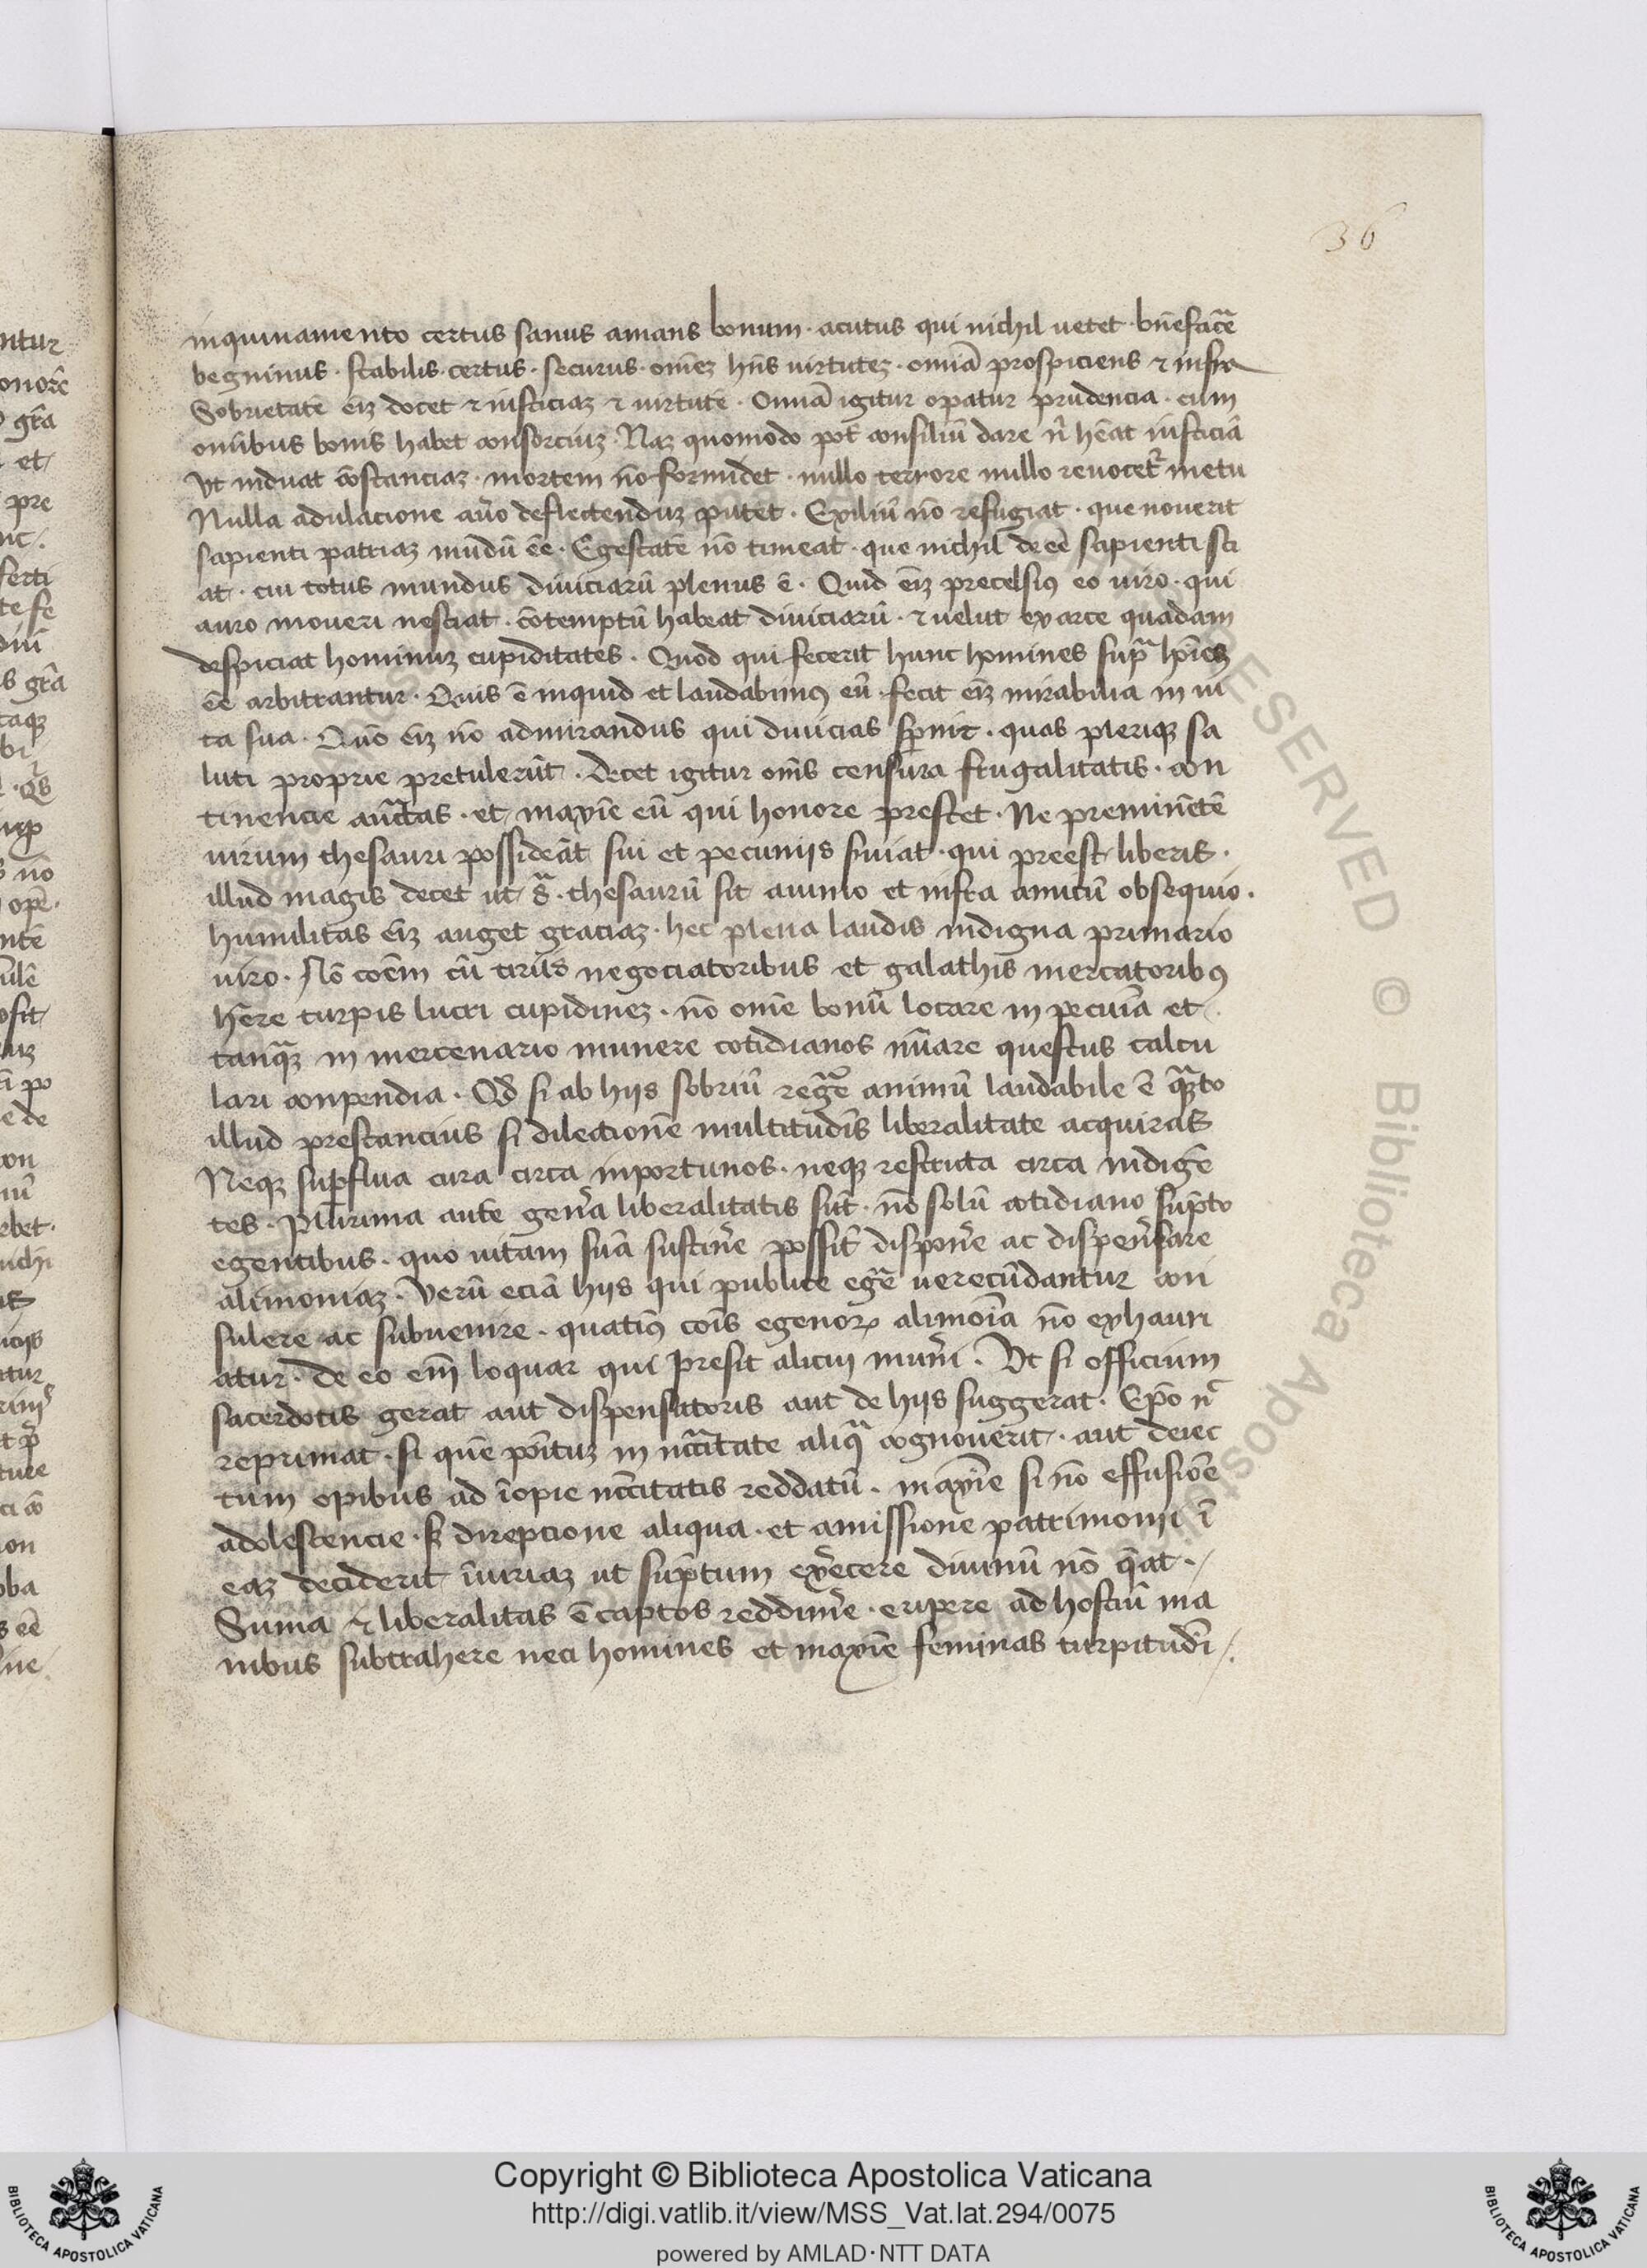 36
inquinamento certus sanus amans bonum · acutus qui nichil uetet · bn̄efac̄ē
begninus · stabilis · certus · securus · om̄eʒ hn̄s uirtuteʒ · om̄ia prospiciens ⁊ infra
Sobrietatē eīʒ docet ⁊ iusticiaʒ ⁊ uirtutē · Om̄ia igitur opatur prudencia · cum
om̄ibus bonis habet consorciuʒ · Naʒ quomodo pōt consiliū dare nͥ hēat iusticiā
Vt induat cōstanciaʒ · mortem nō formidet · nullo terrore nullo reuocetͬ metu
Nulla adulacione aūo deflectenduʒ putet · Exiliū nō refugiat · que nouerit
sapienti patriaʒ mundū ēe · Egestatē nō timeat · que nichil deeē sapienti sci
at · cui totus mundus diuiciarū plenus ē · Quid eīʒ precelsiꝰ eo uiro · qui
auro moueri nesciat · cōtemptū habeat diuiciarū · ⁊ uelut ex arce quadam
despiciat hominuʒ cupiditates · Quod qui fecerit hunc homines supᵃ hōies
ēe arbitrantur · Quis ē inquid et laudabimꝰ eū · fecit eīʒ mirabilia in ui
ta sua · Quō eīʒ nō admirandus qui diuicias sp̄nit · quas pleriqʒ sa
luti proprie pretulerūt · Decet igitur om̄s censura frugalitatis · con
tinencie auc̄tas · et maxīe eū qui honore prestet · Ne preminētē
uirum thesauri possideāt sui et pecuniis s̄uiat · qui preest liberis ·
illud magis decet ut sᵃ · thesaurū sit animo et infra amicū obsequio ·
humilitas eīʒ auget graciaʒ · hec plena laudis indigna primario
uiro · Nō coēm cū tiriis negociatoribus et galathis mercatoribꝰ
hēre turpis lucri cupidineʒ · nō om̄e bonū locare in pecuīa et
tanqᵃʒ in mercenario munere cotidianos nūare questus calcu
lari conpendia · Qd̄ si ab hiis sobriū reḡe animū laudabile ē qᵃʒto
illud prestancius si dilectionē multitudīs liberalitate acquiras
Neqʒ suꝑflua cura circa inportunos · neqʒ restricta circa indigē
tes · Plurima autē gen̄a liberalitatis sūt · nō solū cotidiano sūpto
egentibus · quo uitam suā sustin̄e possit̄ dispon̄e ac dispen̄sare
alimoniaʒ · Verū eciā hiis qui publice eḡe uerecūdantur con
sulere ac subuenire · quatiꝰ coīs egenoꝝ alimoīa nō exhauri
atur · de eo em̄ loquar qui presit alicui mun̄i · Vt si officium
sacerdotis gerat aut dispensatoris aut de hiis suggerat · Ep̄o nͥ
reprimat · si quē pōituʒ in nc̄citate aliqᵃ cognouerit · aut deiec
tum opibus ad īopie nc̄citatis reddatū · maxīe si nō effusiōe
adolescencie · sꝫ direpcione aliqua · et amissione patrimonii ī
eaʒ deciderit īiuriaʒ ut sūptum ex̄ecere diuinū nō q̄at ·
Suma ⁊ liberalitas ē captos reddim̄e · eripere ad hostiū ma
nibus subtrahere neci homines et maxīe feminas turpitudī
Copyright © Biblioteca Apostolica Vaticana
http://digi.vatlib.it/view/MSS_Vat.lat.294/0075
powered by AMLAD·NTT DATA